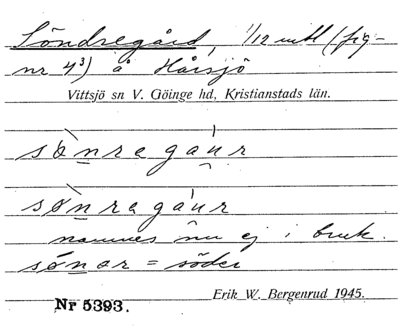 Söndregård, 1/12 mtl (jfg-
nr 4³) å Hårsjö
Vittsjö sn V. Göinge hd, Kristianstads län.
sønregaur
sønregaur
namnes nu ej i bruk.
sønar = söder
Erik W. Bergenrud 1945.
Nr 5393.